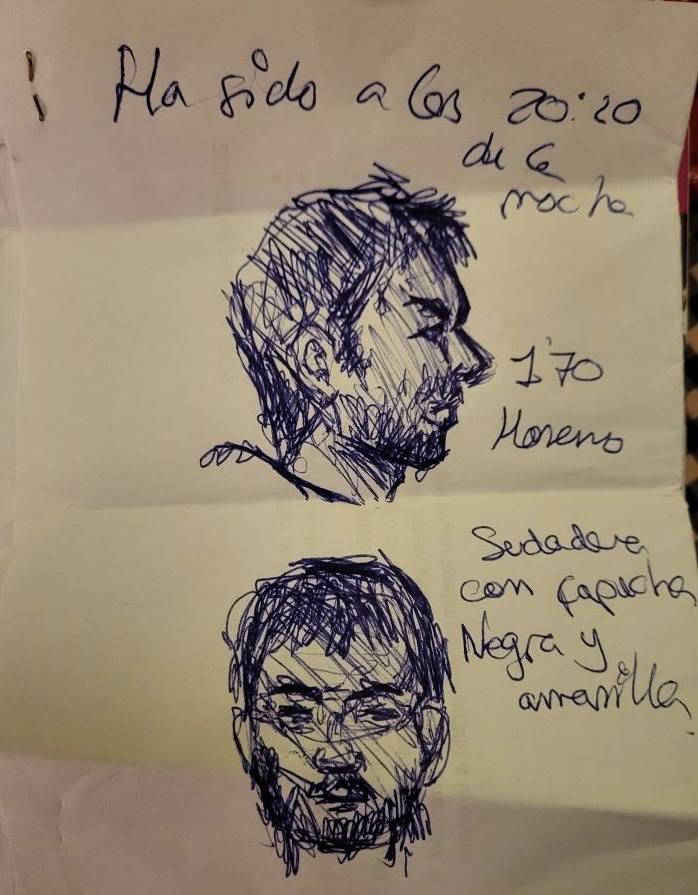 Ha sido a las 20:20
de la
noche
1'70
Moreno
Sudadera
con capucha
Negra y
amarilla